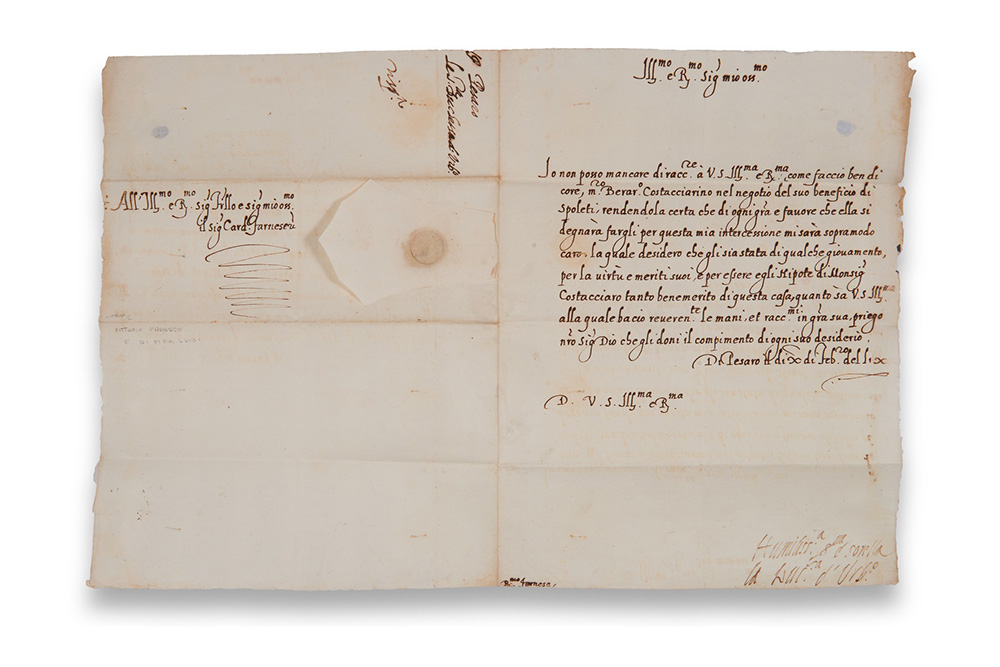 Ill.mo e R.mo Sig mio oss.mo
Io non posso mancare di racc.re à V.S. Ill.ma e R.ma, come faccio ben di
core, m.ro Berar.o Costacciarino nel negotio del suo beneficio di
Spoleti, rendendola certa che di ogni gra e favore che ella si
degnarà fargli per questa mia intercessione mi sarà sopramodo
caro, la quale desidero che gli sia stata di qualche giovamento,
per la virtù e meriti suoi, e per essere egli Nipote di Monsig
Costacciaro tanto benemerito di questa casa, quanto sà V.S. Ill.ma
alla quale bacio reveren.te le mani, et racc.mi in gra sua, priego
nro Sig Dio che gli doni il compimento di ogni suo desiderio.
Di Pesaro il di X di Feb.ro del Lix
D. V. S. Ill.ma e R.ma
Humiliss.a
la Duc.sa d'Urb.o
All' Ill.mo e R.mo Sig e sig mio oss.mo
il Sig Card. Farnese
Pesaro
R.mo farnese